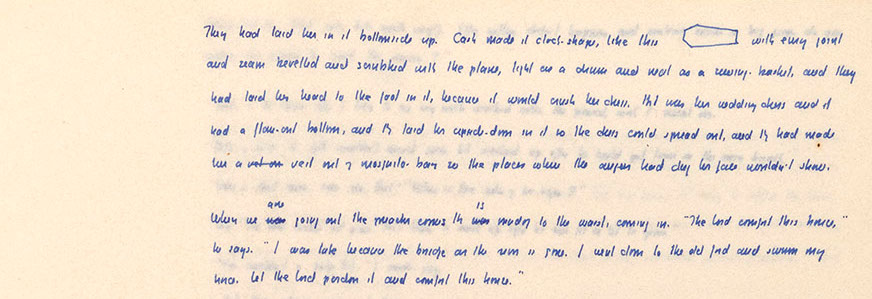 They had laid her in it bottomside up. Cash made it clock-shape, like this with every joint
and seam bevelled and scrubbed with the plane, tight as a drum and neat as a sewing basket, and they
had laid her head to the foot in it, because it would crush her dress. It was her wedding dress and it
had a flare-out bottom, and they laid her upside-down in it so the dress could spread out, and they had made
her a veil out of mosquito bar so the places where the auger had clay her face wouldn't show.
When we are going out the preacher comes. He is muddy to the waist, coming in. "The Lord comfort this house,"
he says. "I was late because the bridge on the river is gone. I went down to the old ford and swum my
horse. Let the Lord pardon it and comfort this house."